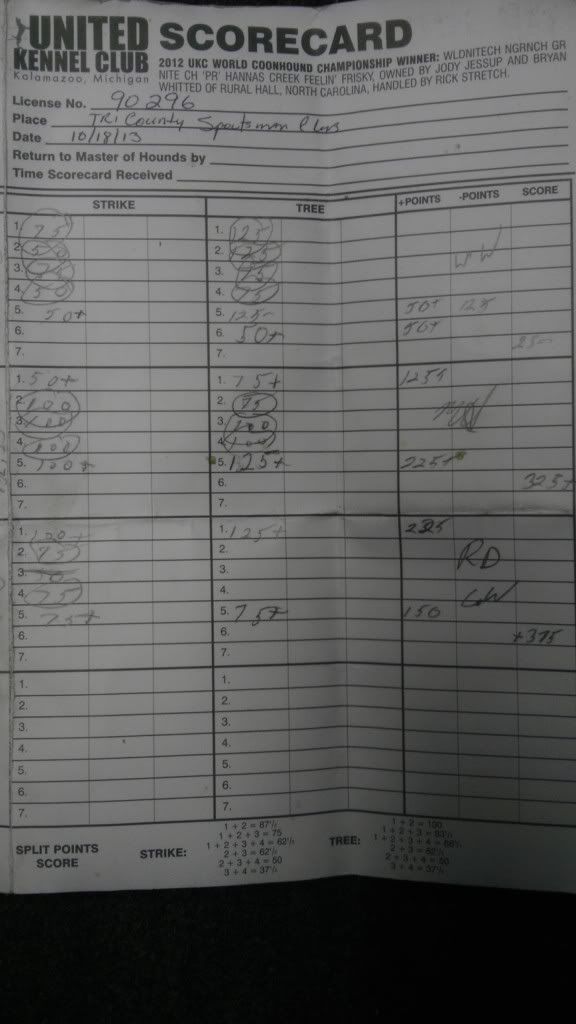 UNITED
KENNEL CLUB
Kalamazoo, Michigan
SCORECARD
2012 UKC WORLD COONHOUND CHAMPIONSHIP WINNER: WLDNITECH NGRNCH GR
NITE CH 'PR' HANNAS CREEK FEELIN' FRISKY, OWNED BY JODY JESSUP AND BRYAN
WHITTED OF RURAL HALL, NORTH CAROLINA, HANDLED BY RICK STRETCH.
License No. 90296
Place TRI County Sportsman
Date 10/18/13
Return to Master of Hounds by
Time Scorecard Received
STRIKE TREE +POINTS -POINTS SCORE
1. 75 1. 125
2. 50 2. 125
3. 75 3. 75
4. 50 4. 75
5. 50+ 5. 125- 50+ 125
6. 6. 50+ 50+
7. 7. 25-
1. 50+ 1. 75+ 125+
2. 100 2. 75
3. 100 3. 100
4. 100 4. 100
5. 100+ 5. 125+ 225+
6. 6. 325+
7. 7.
1. 100+ 1. 125+ 225
2. 75 2. RD
3. 50 3.
4. 75 4.
5. 75+ 5. 75+ 150
6. 6. +375
7. 7.
1. 1.
2. 2.
3. 3.
4. 4.
5. 5.
6. 6.
7. 7.
SPLIT POINTS
SCORE
STRIKE:
1 + 2 = 87½
1 + 2 + 3 = 75
1 + 2 + 3 + 4 = 62½
2 + 3 = 62½
2 + 3 + 4 = 50
3 + 4 = 37½
TREE:
1 + 2 = 100
1 + 2 + 3 = 83⅓
2 + 3 + 4 = 50
3 + 4 = 37½